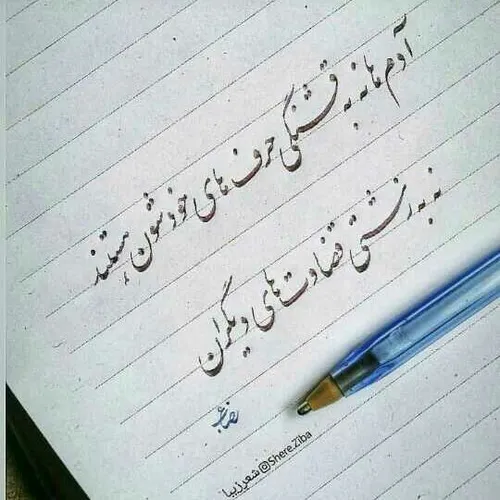 آدم ها نه به قشنگی حرف های خودشون هستند
نه به زشتی قضاوت های دیگران
@Shere.Ziba شعر زیبا